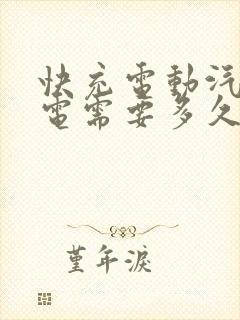 快充電動汽
電需要多久
堇年淚